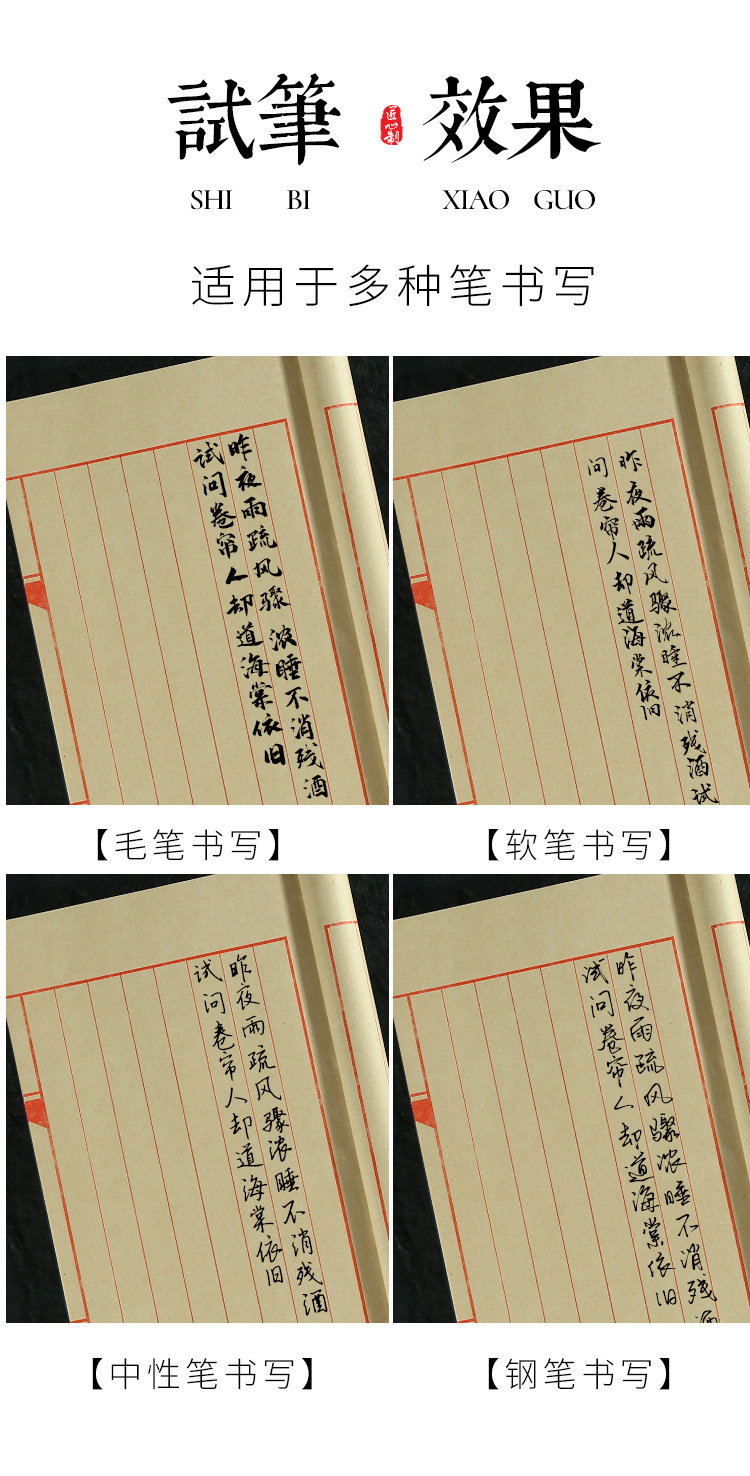 試筆
匠心制
效果
SHI BI XIAO GUO
适用于多种笔书写
昨夜雨疏风骤浓睡不消残酒
试问卷帘人却道海棠依旧
【毛笔书写】
昨夜雨疏风骤浓睡不消残酒试
问卷帘人却道海棠依旧
【软笔书写】
昨夜雨疏风骤浓睡不消残酒
试问卷帘人却道海棠依旧
【中性笔书写】
昨夜雨疏风骤浓睡不消残酒
试问卷帘人却道海棠依旧
【钢笔书写】